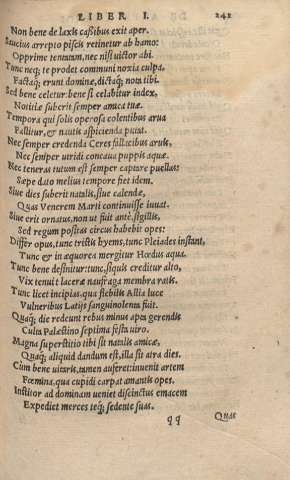 LIBER I. 242
Non bene de laxis cassibus exit aper.
Saucius arrepto piscis retinetur ab hamo:
Opprime tentatum, nec nisi uictor abi.
Tunc neq; te prodet communi noxia culpa,
Factaq; erunt dominæ, dictaq; nota tibi.
Sed bene celetur: bene si celabitur index,
Notitiæ suberit semper amica tuæ.
Tempora qui solis operosa colentibus arua
Fallitur, & nautis aspicienda putat.
Nec semper credenda Ceres fallacibus aruis,
Nec semper uiridi concaua puppis aquæ.
Nec teneras tutum est semper captare puellas:
Sæpe dato melius tempore fiet idem.
Siue dies suberit natalis, siue calendæ,
Quas Venerem Marti continuisse iuuat.
Siue erit ornatus, non ut fuit antè, sigillis,
Sed regum positas circus habebit opes:
Differ opus, tunc tristis hyems, tunc Pleiades instant,
Tunc & in æquorea mergitur Hœdus aqua.
Tunc bene desinitur: tunc, siquis creditur alto,
Vix tenuit laceræ naufraga membra ratis.
Tunc licet incipias, qua flebilis Allia luce
Vulneribus Latijs sanguinolenta fuit.
Quaq; die redeunt rebus minus apta gerendis
Culta Palæstino septima festa uiro.
Magna superstitio tibi sit natalis amicæ,
Quaq; aliquid dandum est, illa sit atra dies.
Cùm bene uitaris, tamen auferet: inuenit artem
Fœmina, qua cupidi carpat amantis opes.
Institor ad dominam ueniet discinctus emacem
Expediet merces teq; sedente suas.
qq Quas